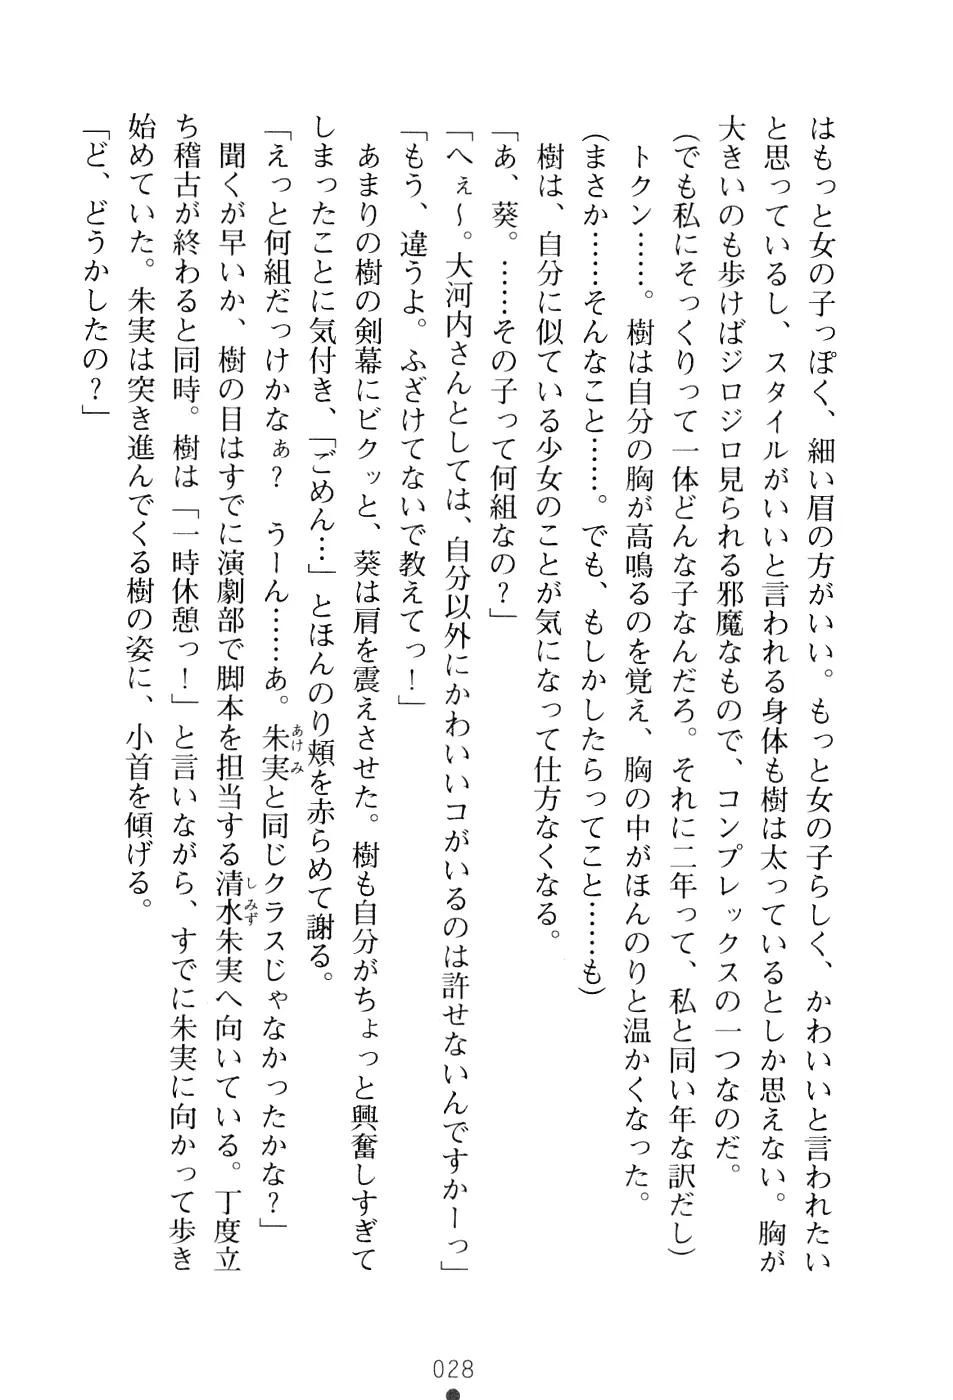 はもっと女の子っぽく、細い眉の方がいい。もっと女の子らしく、かわいいと言われたい
と思っているし、スタイルがいいと言われる身体も樹は太っているとしか思えない。胸が
大きいのも歩けばジロジロ見られる邪魔なもので、コンプレックスの一つなのだ。
(でも私にそっくりって一体どんな子なんだろ。それに二年って、私と同い年な訳だし)
トクン……。樹は自分の胸が高鳴るのを覚え、胸の中がほんのりと温かくなった。
(まさか……そんなこと……。でも、もしかしたらってこと……も)
樹は、自分に似ている少女のことが気になって仕方なくなる。
「あ、葵。……その子って何組なの？」
「へぇ～。大河内さんとしては、自分以外にかわいいコがいるのは許せないんですかーっ」
「もう、違うよ。ふざけてないで教えてっ！」
あまりの樹の剣幕にビクッと、葵は肩を震えさせた。樹も自分がちょっと興奮しすぎて
しまったことに気付き、「ごめん…」とほんのり頬を赤らめて謝る。
「えっと何組だっけかなぁ？　うーん……あ。朱実と同じクラスじゃなかったかな？」
あけみ
聞くが早いか、樹の目はすでに演劇部で脚本を担当する清水朱実へ向いている。丁度立
しみず
ち稽古が終わると同時。樹は「一時休憩っ！」と言いながら、すでに朱実に向かって歩き
始めていた。朱実は突き進んでくる樹の姿に、小首を傾げる。
「ど、どうかしたの？」
028